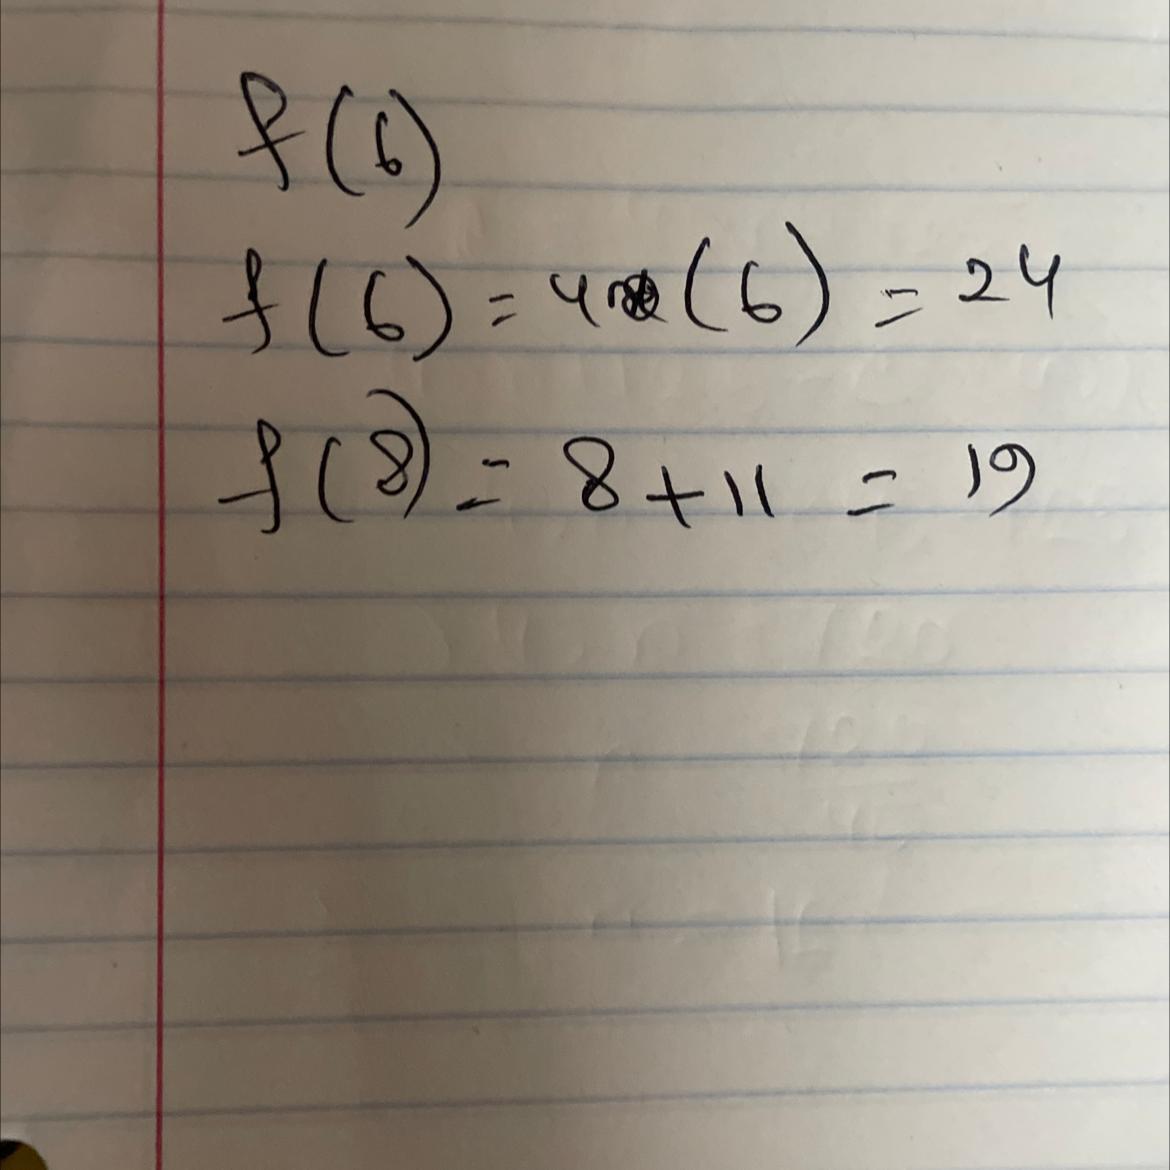 f(6)
f(6) = 4(6) = 24
f(8) = 8 + 11 = 19